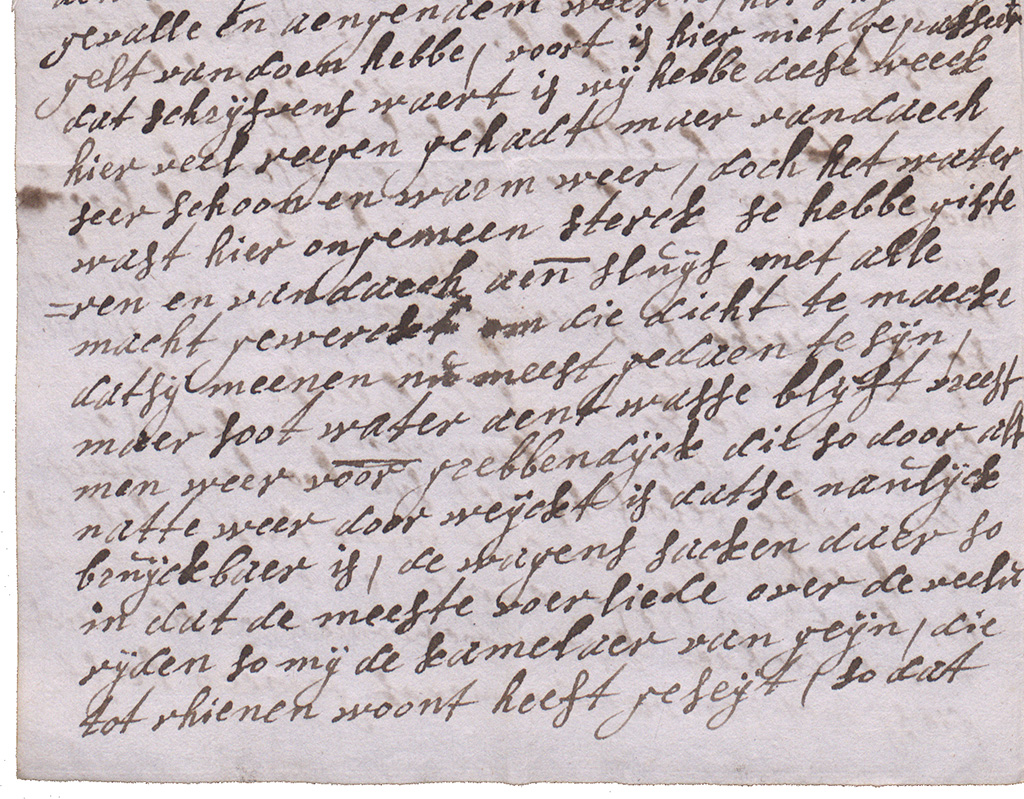 gevalle en aengenaem
gelt van doen hebbe, voort is hier niet gepasseert
dat schrijfvens waert is wij hebbe deese weeck
hier veel reegen gehadt maer vandaech
seer schoon en warm weer, doch het water
wast hier ongemeen sterck se hebbe giste
=ren en vandaech aen sluijs met alle
macht gewerckt om die dicht te maecke
datsij meenen nu meest gedaen te sijn,
maer soot water aent wasse blijft vreest
men weer voor grebbendijck die so door alt
natte weer door weijckt is datse naulijck
bruijckbaer is, de wagens sacken daer so
in dat de meeste voerliede over de veeluw
rijden so mij de kamelaer van geijn, die
tot rhienen woont heeft geseijt, so dat